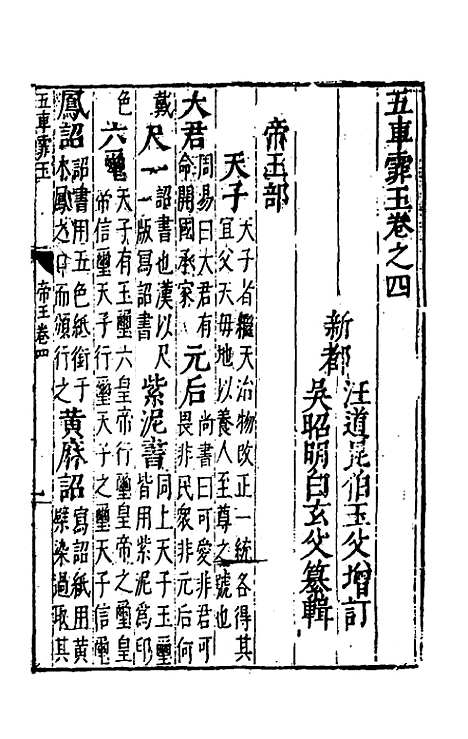 五車霏玉卷之四
新都
汪道昆伯玉父增訂
吳昭明白玄父纂輯
帝王部
天子 天子者繼天治物改正一統各得其
宜父天母地以養人至尊之號也
大君 周易曰大君有
命開國承家 元后 尚書曰可愛非君可
畏非民衆非元后何
戴 尺一 詔書也漢以尺
一版寫詔書 紫泥書 同上天子玉璽
皆用紫泥爲印
色 六璽 天子有玉璽六皇帝行璽皇帝之璽皇
帝信璽天子行璽天子之璽天子信璽
鳳詔 詔書用五色紙銜于
木鳳之口而頒行之 黃麻詔 寫詔紙用黃
檗染過取其
五車霏玉
帝王卷四
一